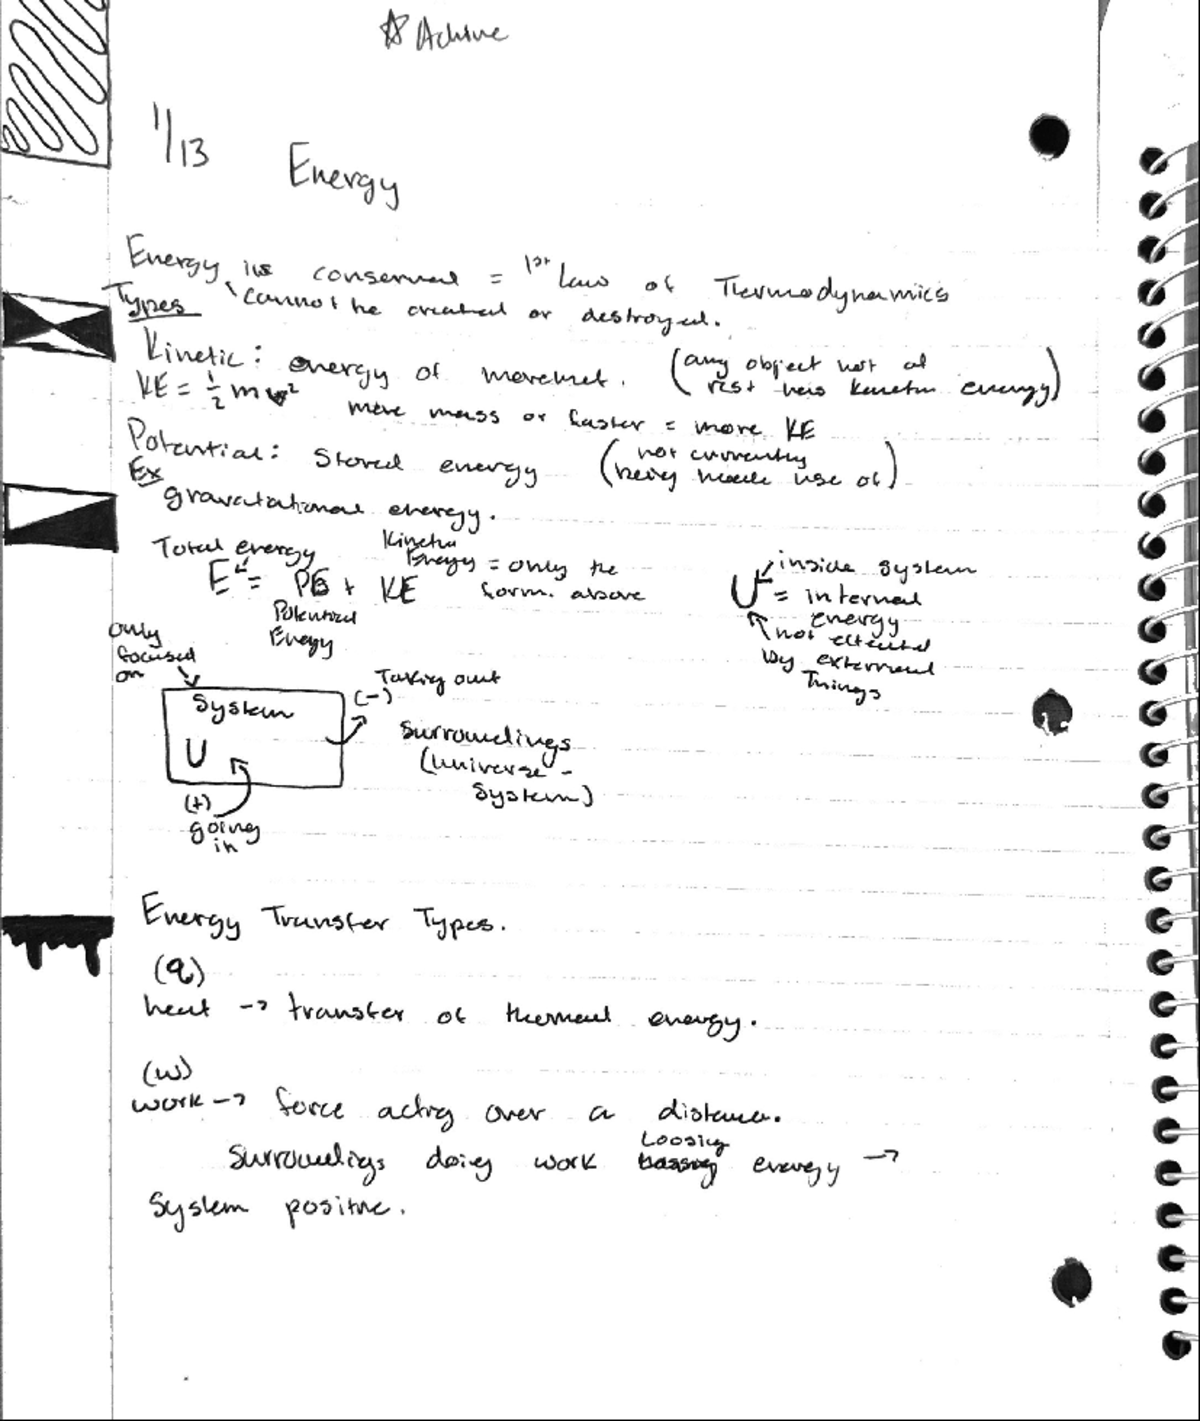 ☆ Achive
1/13
Energy
Energy is conserved = 1st Law of Thermodynamics
Types
cannot be created or destroyed.
Kinetic: energy of movement. (any object not at rest has kinetic energy)
KE = 1/2 mv²
more mass or faster = more KE
Potential: Stored energy (not currently being made use of)
Ex
gravatational energy.
Total energy
E = PE + KE
Potential Energy
Kinetic Energy = only the form. above
U = internal energy
inside system
not affected by external Things
only focused on
System
U
(-) Taking out
(+) going in
Surroundings
(universe - System)
Energy Transfer Types.
(q)
heat → transfer of thermal energy.
(w)
work → force acting over a distance.
Surroundings doing work Loosing energy →
System positive.